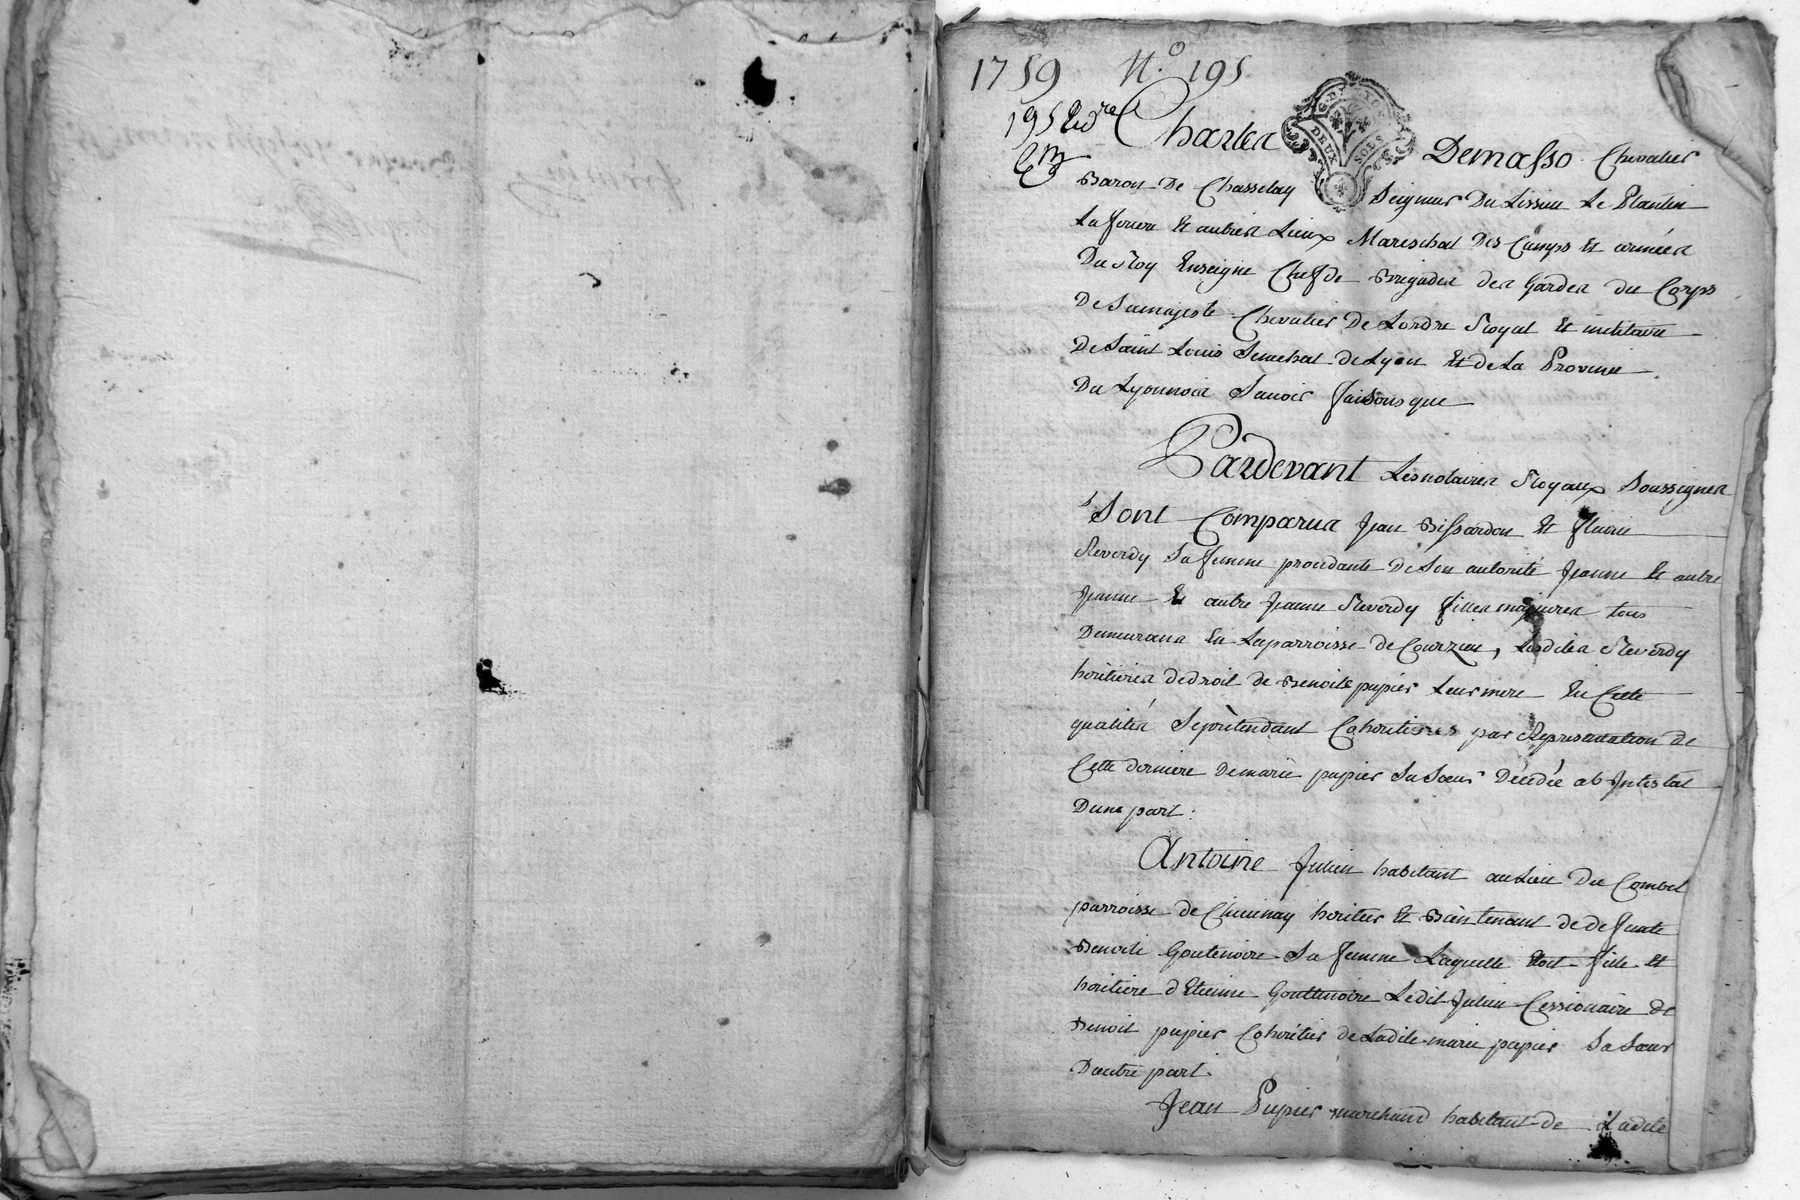 1759 N.o 195
195 Charles Demasso Chevalier
Baron De Chasselay Seigneur Du Lissieu Le Plantin
La ferere Et autres Lieux Mareschal Des Camps Et armées
Du Roy Enseigne Chef de Brigades des Gardes du Corps
De Samajesté Chevalier De Lordre Royal Et militaire
De Saint Louis Senechal de Lyon Et de La Province
Du Lyonnois Sauoir faisons que
Pardevant Les notaires Royaux Soussignes
Sont Comparus Jean Bissardon Et fleurie
Reverdy Sa femme procedante De Son autorité Jeanne Et autre
Jeanne Et autre Jeanne Reverdy filles majeures tous
Demeurans En Laparroisse de Courzieu, Lesdites Reverdy
héritieres dedroit de Benoite pupier Leur mere En Cette
qualités Seprétendant Cohéritieres par Représentation de
Cette derniere De marie pupier Sa Sœur Décédée ab Intestat
Dune part.
Antoine Julien habitant au Lieu Du Combet
parroisse de Chevinay héritier Et Bientenant de defunte
Benoite Goutenoire Sa femme Laquelle Etoit fille Et
héritiere d'Etienne Gouttenoire Ledit Julien Cessionaire de
Benoit pupier Cohéritier de Ladite marie pupier Sa Sœur
Dautre part.
Jean Pupier marchand habitant de Ladite
GEN LYON
DEUX SOLS